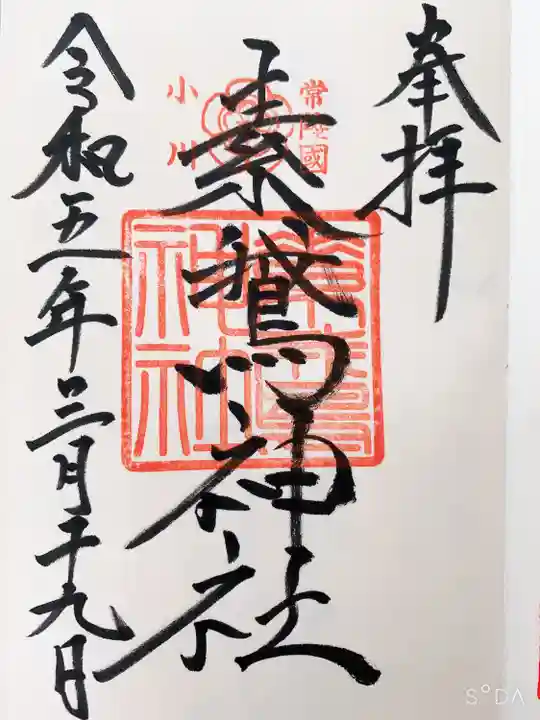 奉拝
常陸國
小川
素鵞神社
素鵞
神社
令和五年三月十九日
SODA